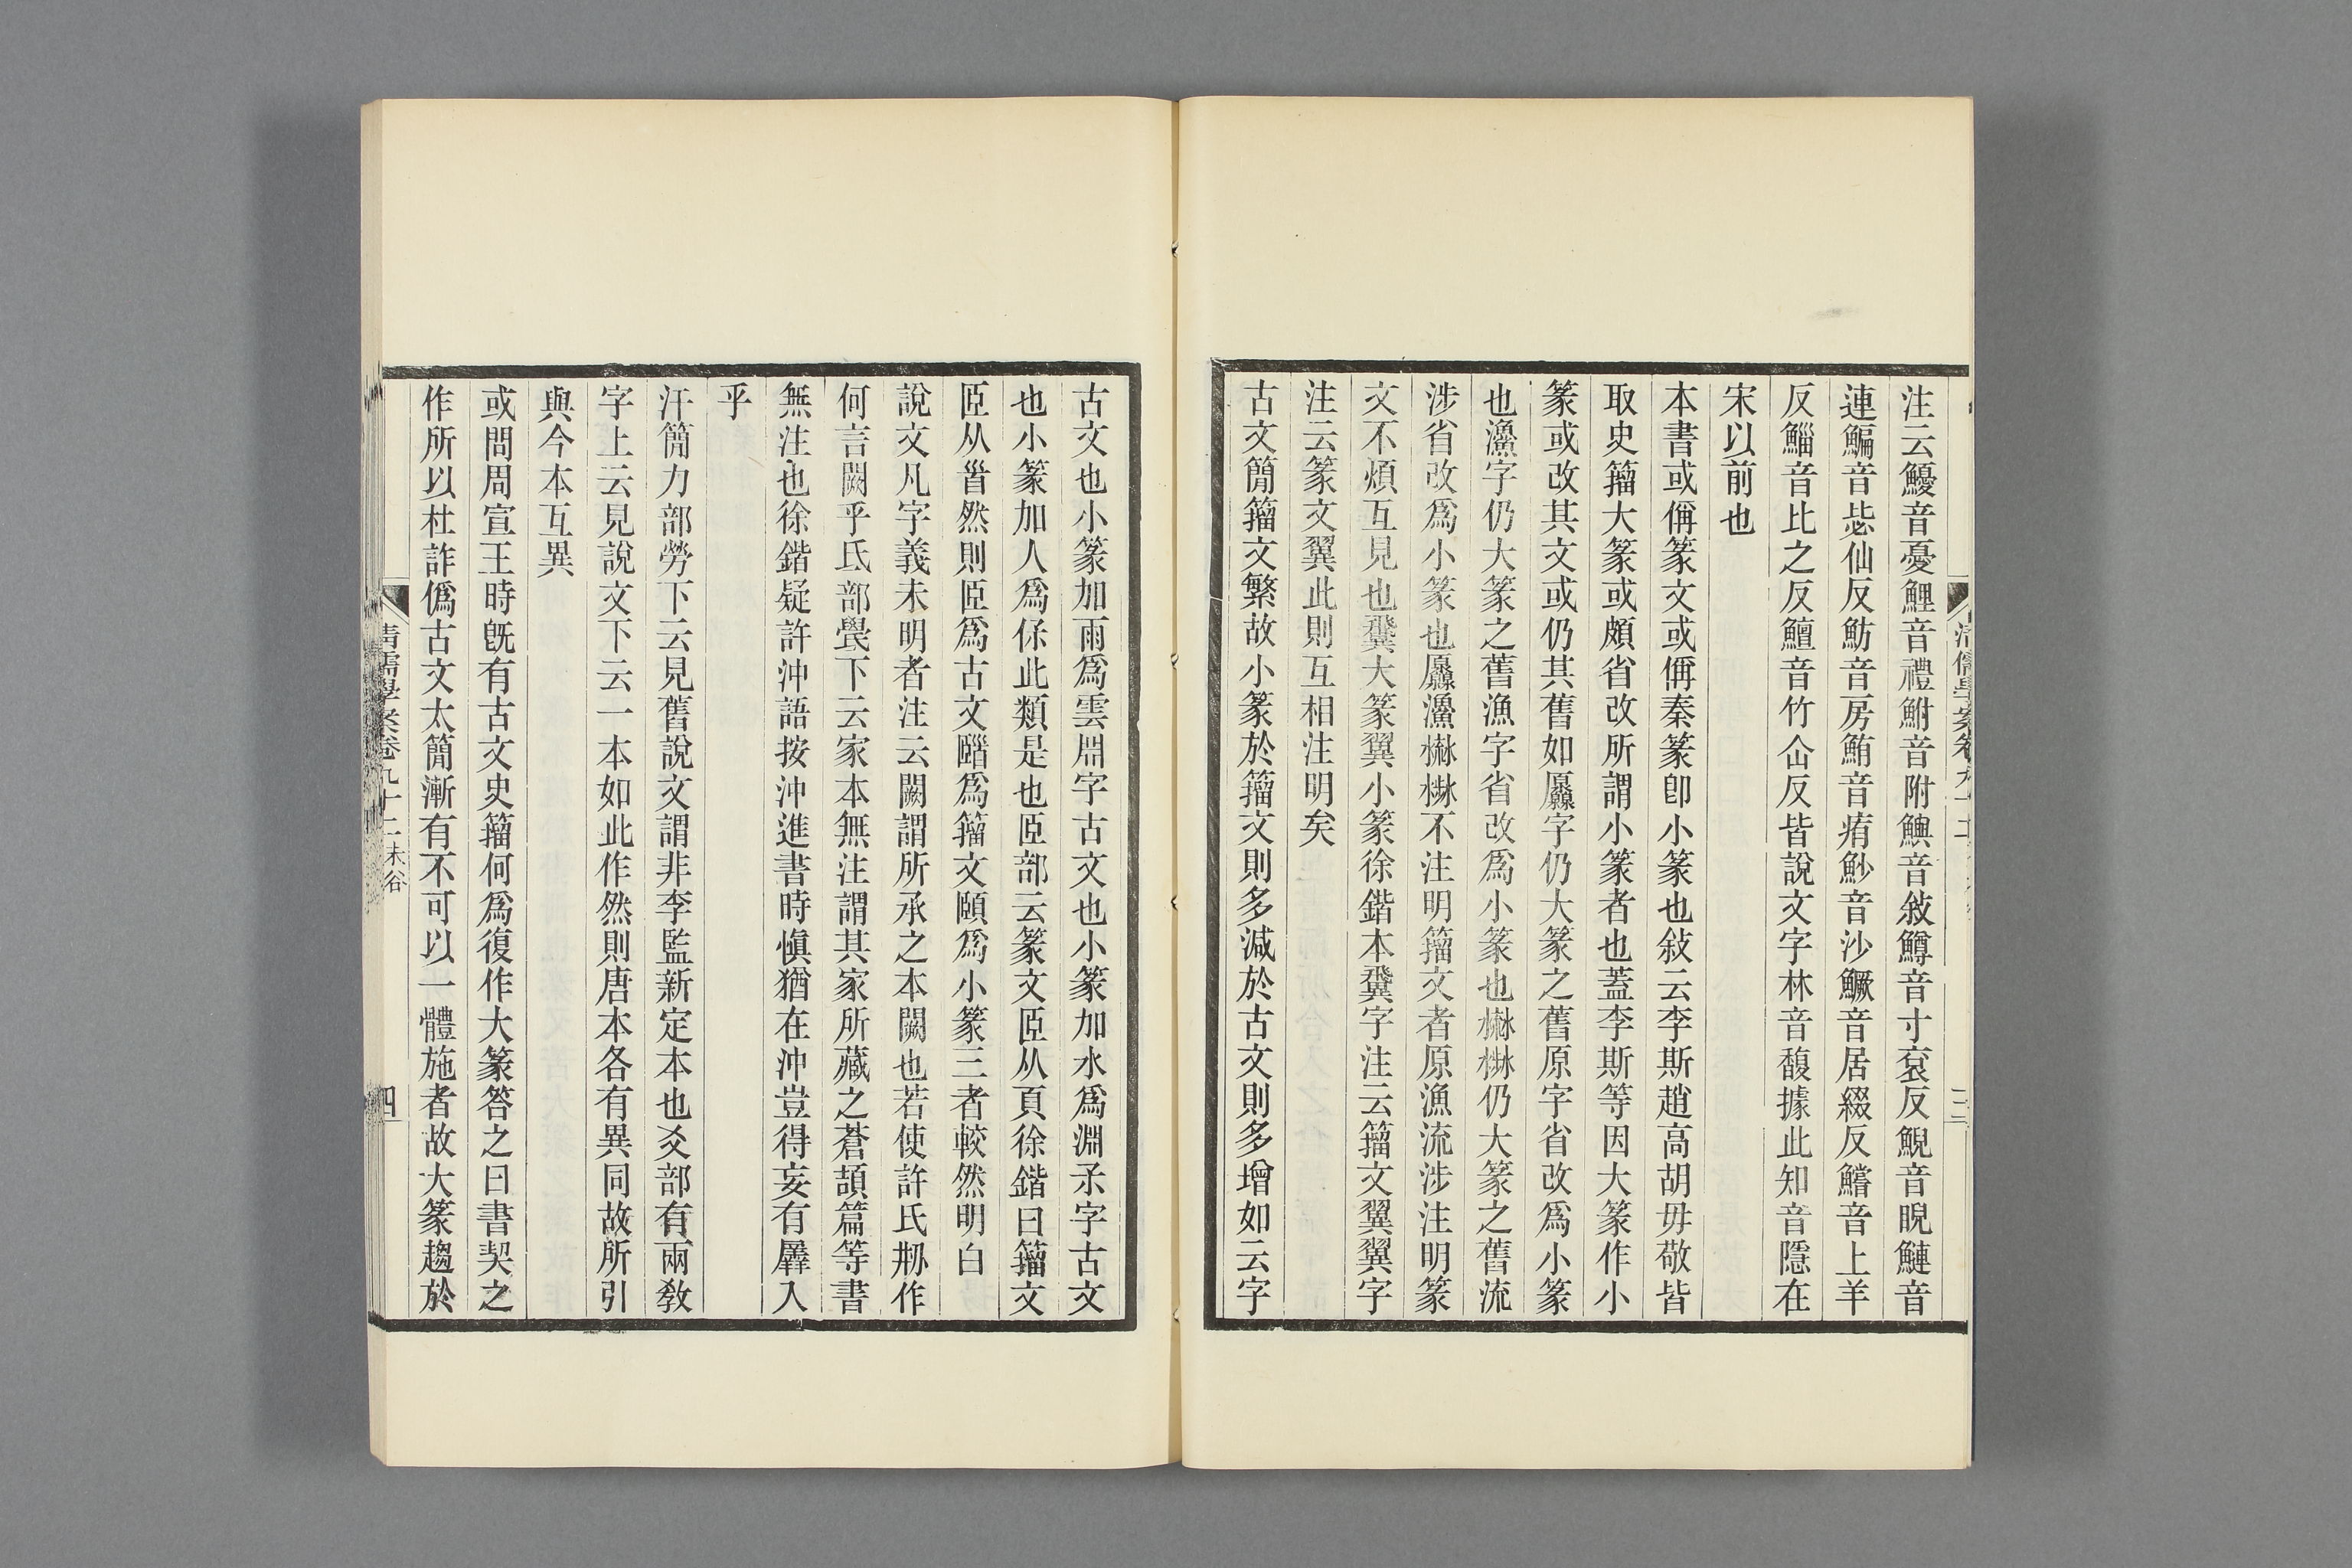 注云鰻音憂鯉音禮鮒音附鱮音敍鱒音寸袞反鯢音睨鰱音
連鯿音毖仙反魴音房鮪音痏魦音沙鱖音居綴反鱨音上羊
反鯔音比之反鱣音竹仚反皆說文字林音馥據此知音隱在
宋以前也
本書或偁篆文或偁秦篆卽小篆也敍云李斯趙高胡毋敬皆
取史籀大篆或頗省改所謂小篆者也蓋李斯等因大篆作小
篆或改其文或仍其舊如厵字仍大篆之舊原字省改爲小篆
也灥字仍大篆之舊漁字省改爲小篆也㵗𣻣仍大篆之舊流
涉省改爲小篆也厵㵗𣻣不注明籀文者原漁流涉注明篆
文不煩互見也𩙺大篆翼小篆徐鍇本𩙺字注云籀文翼翼字
注云篆文翼此則互相注明矣
古文簡籀文繁故小篆於籀文則多減於古文則多增如云字
古文也小篆加雨爲雲𣶒字古文也小篆加水爲淵𤓽字古文
也小篆加人爲保此類是也𦣞部云篆文𦣞从頁徐鍇曰籀文
𦣞从𩠐然則𦣞爲古文𦣦爲籀文頤爲小篆三者較然明白
說文凡字義未明者注云闕謂所承之本闕也若使許氏剏作
何言闕乎氏部𣱌下云家本無注謂其家所藏之蒼頡篇等書
無注也徐鍇疑許沖語按沖進書時愼猶在沖豈得妄有羼入
乎
汗簡力部勞下云見舊說文謂非李監新定本也爻部有兩敎
字上云見說文下云一本如此作然則唐本各有異同故所引
與今本互異
或問周宣王時旣有古文史籀何爲復作大篆答之曰書契之
作所以杜詐僞古文太簡漸有不可以一體施者故大篆趨於
清儒學案卷九十二 未谷
四